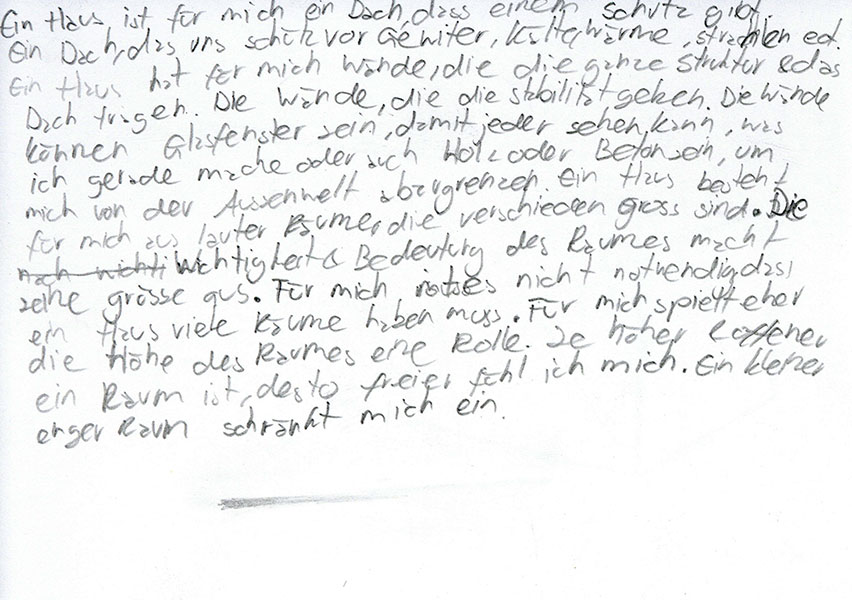 Ein Haus ist für mich ein Dach, dass einem schutz gibt.
Ein Dach, das uns schütz vor Gewiter, Kälte, wärme, strahlen ect.
Ein Haus hat für mich Wände, die die ganze Struktur & das
Dach tragen. Die Wände, die die stabilität geben. Die Wände
können Glasfenster sein, damit jeder sehen kann, was
ich gerade mache oder auch Holz oder Beton sein, um
mich von der Aussenwelt abzugrenzen. Ein Haus besteht
für mich aus lauter Räumen, die verschieden gross sind. Die
Wichtigkeit & Bedeutung des Raumes macht
seine grösse aus. Für mich ist es nicht notwendig, dass
ein Haus viele Räume haben muss. Für mich spielt eher
die Höhe des Raumes eine Rolle. Je höher & offener
ein Raum ist, desto freier fühl ich mich. Ein kleiner
enger Raum schränkt mich ein.